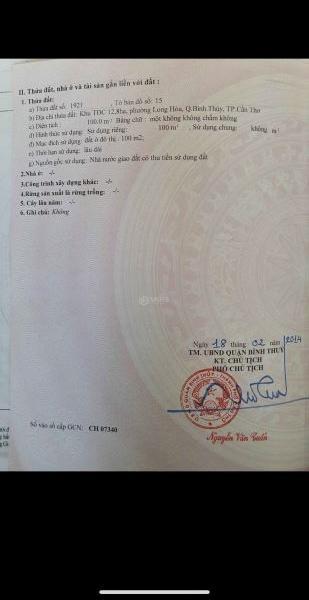 II. Thửa đất, nhà ở và tài sản gắn liền với đất :
1. Thửa đất:
a) Thửa đất số: 1921 , Tờ bản đồ số: 15
b) Địa chỉ thửa đất: Khu TĐC 12,8ha, phường Long Hòa, Q.Bình Thủy, TP.Cần Thơ
c) Diện tích : 100.0 m² Bằng chữ : một không không chấm không
d) Hình thức sử dụng: Sử dụng riêng: 100 m² , Sử dụng chung: không m²
đ) Mục đích sử dụng: đất ở đô thị : 100 m2;
e) Thời hạn sử dụng: lâu dài
g) Nguồn gốc sử dụng: Nhà nước giao đất có thu tiền sử dụng đất
2.Nhà ở: -/-
3.Công trình xây dựng khác: -/-
4.Rừng sản xuất là rừng trồng: -/-
5. Cây lâu năm: -/-
6. Ghi chú: Không
Ngày 18 tháng 02 năm 2014
TM. UBND QUẬN BÌNH THỦY
KT. CHỦ TỊCH
PHÓ CHỦ TỊCH
Nguyễn Văn Tuấn
Số vào sổ cấp GCN: CH 07340